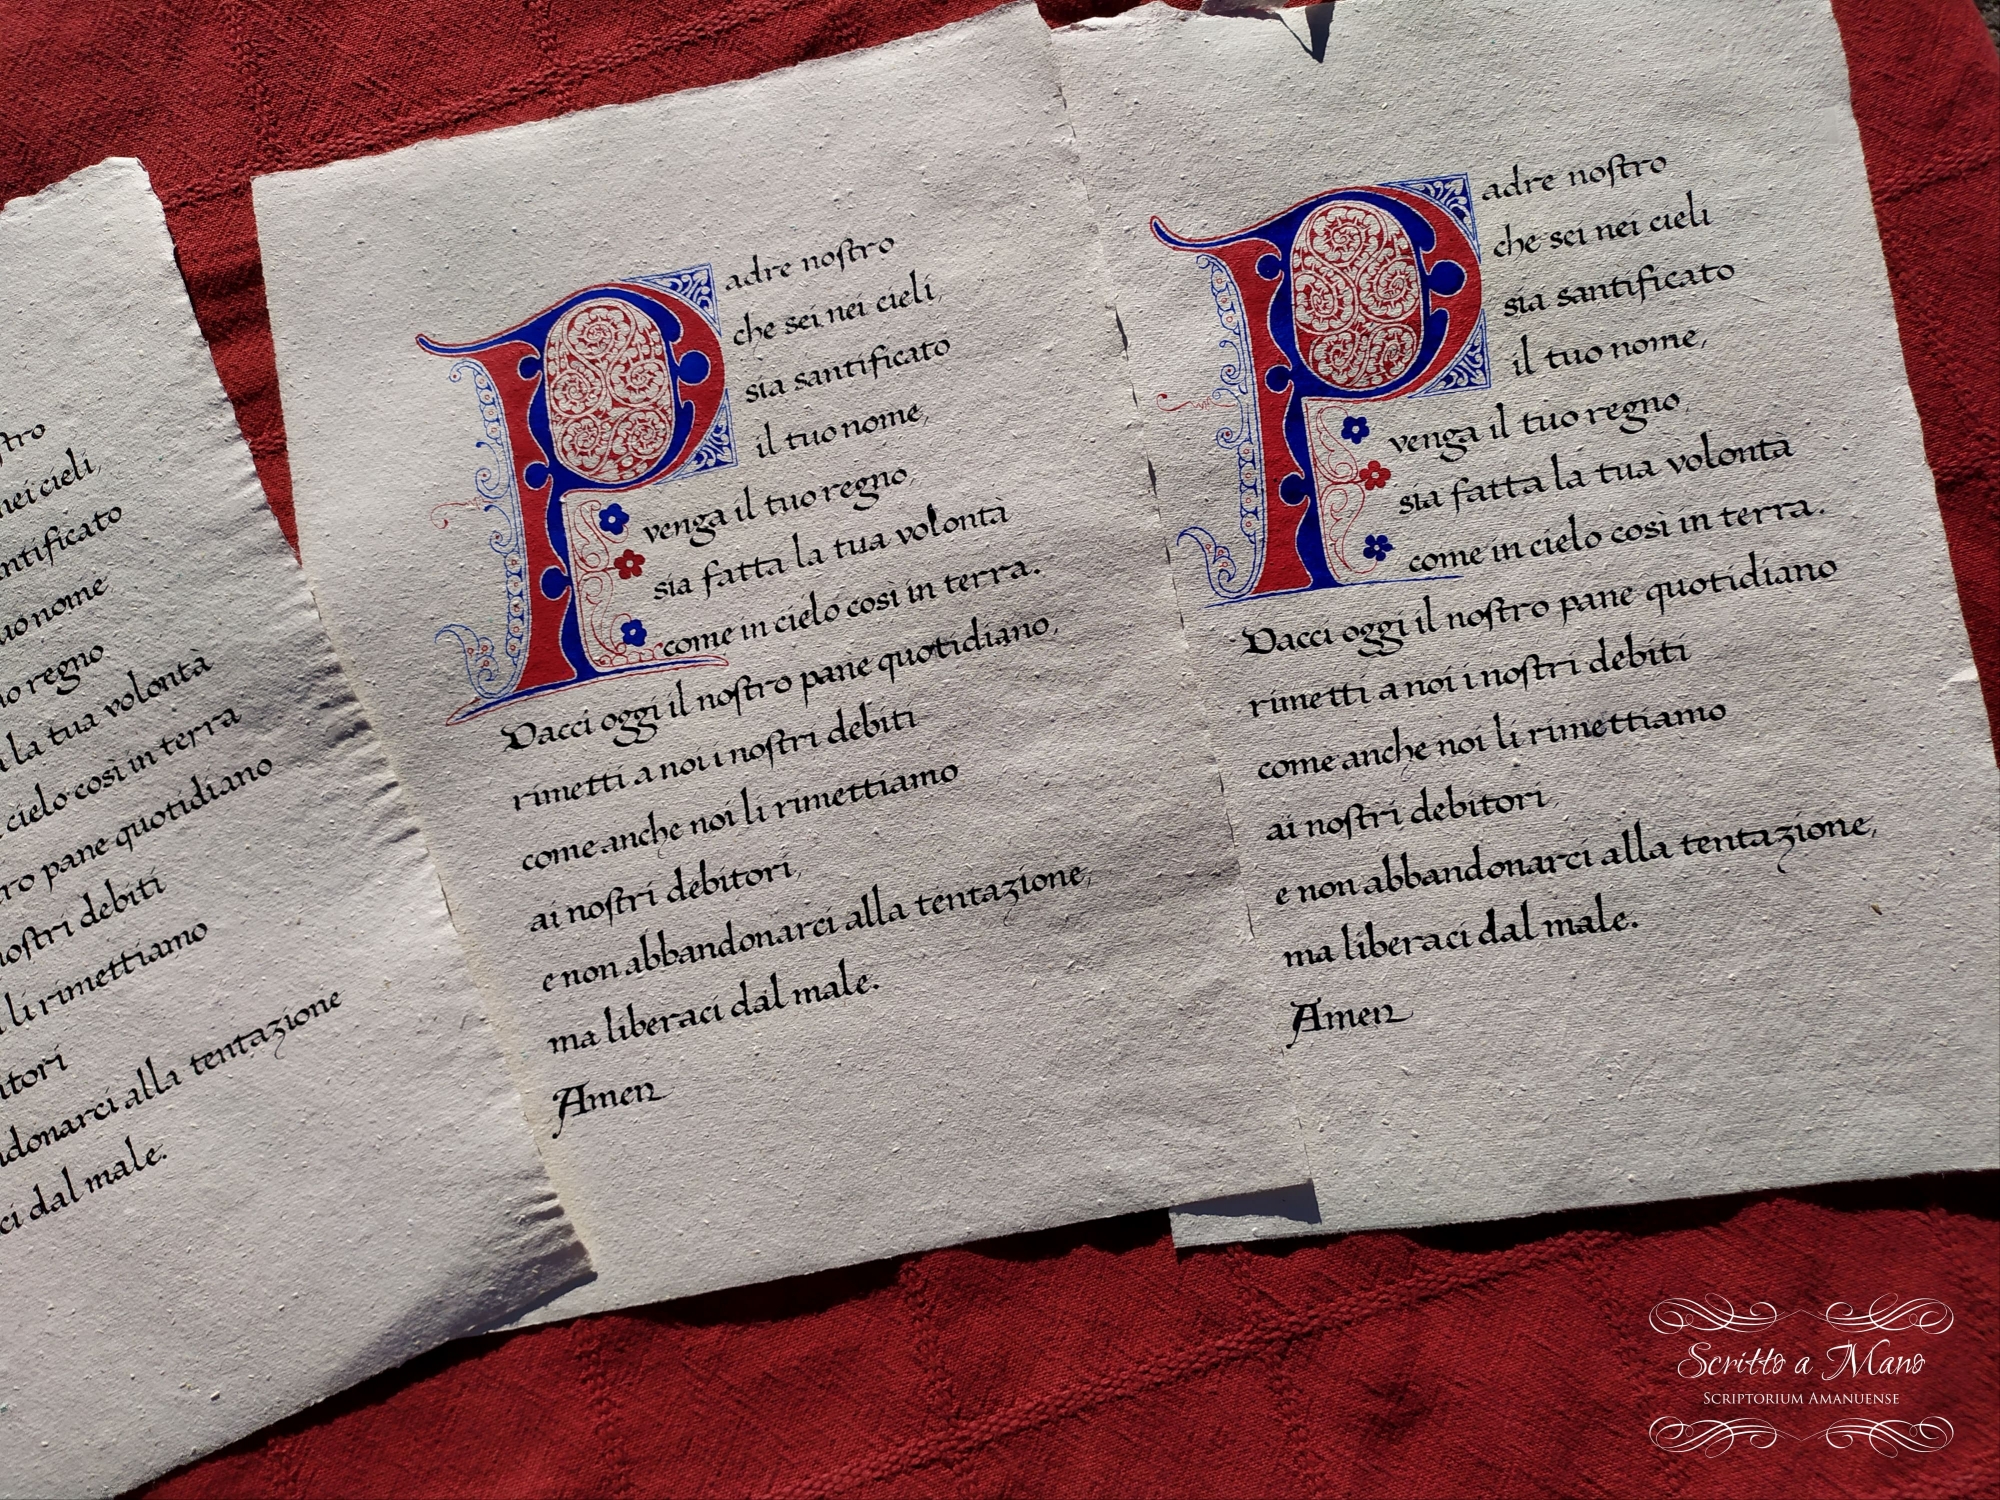 stro
nei cieli,
antificato
uo nome
uo regno
la tua volontà
cielo così in terra
ro pane quotidiano
nostri debiti
li rimettiamo
itori
donarci alla tentazione
ci dal male.
Padre nostro
che sei nei cieli,
sia santificato
il tuo nome,
venga il tuo regno,
sia fatta la tua volontà
come in cielo così in terra.
Dacci oggi il nostro pane quotidiano,
rimetti a noi i nostri debiti
come anche noi li rimettiamo
ai nostri debitori,
e non abbandonarci alla tentazione,
ma liberaci dal male.
Amen
Padre nostro
che sei nei cieli
sia santificato
il tuo nome,
venga il tuo regno,
sia fatta la tua volontà
come in cielo così in terra.
Dacci oggi il nostro pane quotidiano
rimetti a noi i nostri debiti
come anche noi li rimettiamo
ai nostri debitori,
e non abbandonarci alla tentazione,
ma liberaci dal male.
Amen
Scritto a Mano
Scriptorium Amanuense